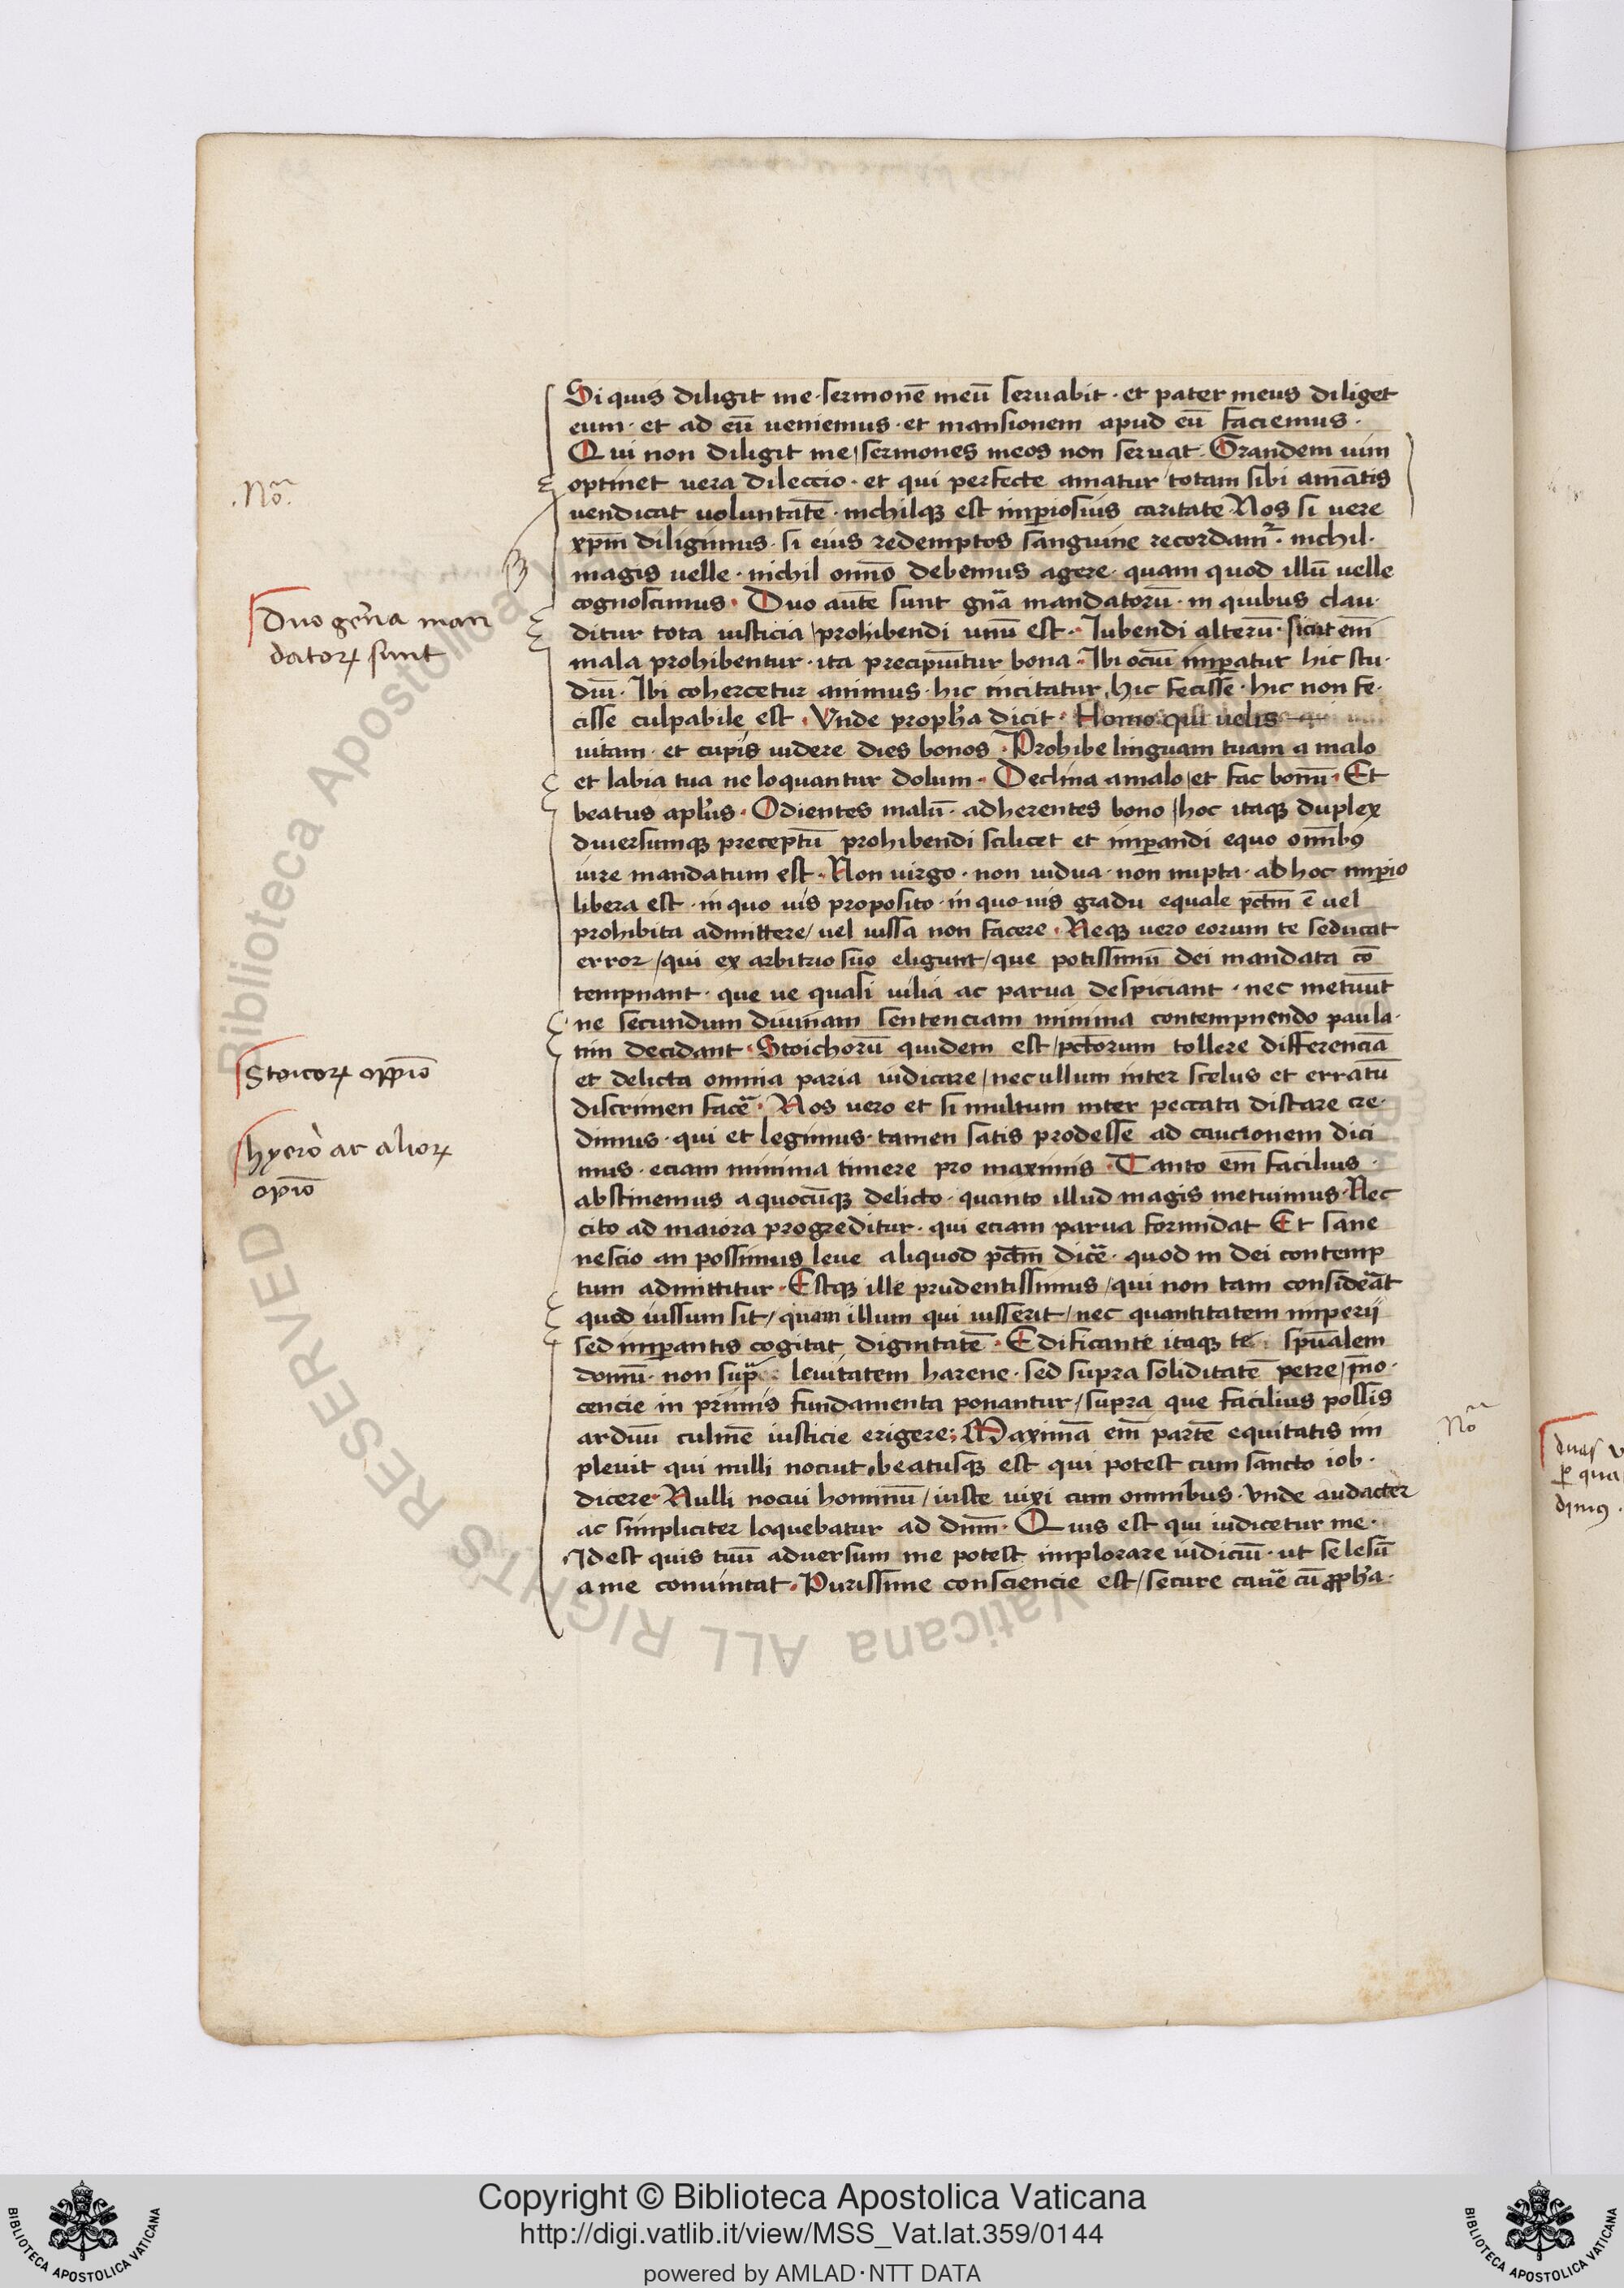 Si quis diligit me · sermonē meū seruabit · et pater meus diliget
eum · et ad eū ueniemus · et mansionem apud eū faciemus ·
Qui non diligit me / sermones meos non seruat · Grandem uim
optinet uera dileccio · et qui perfecte amatur / totam sibi amātis
vendicat uoluntatē · nichilqꝫ est imꝑiosius caritate · Nos si uere
xp̄m diligimus · si eius redemptos sanguine recordamᷣ · nichil ·
magis uelle · nichil om̄o debemus agere · quam quod illū uelle
cognoscimus · Duo autē sunt gn̄a mandatorū · in quibus clau·
ditur tota iusticia / prohibendi unū est · Iubendi alterū · sicut em̄
mala prohibentur · ita precipiūtur bona · Ibi ociū imꝑatur hic stu·
diū · Ibi cohercetur animus · hic incitatur / hic fecisse · hic non fe·
cisse culpabile est · Vnde proph̄a dicit · Homo qui uelis
uitam · et cupis uidere dies bonos · Prohibe linguam tuam a malo
et labia tua ne loquantur dolum · Declina a malo / et fac bonū · Et
beatus apl̄us · Odientes malū · adherentes bono / hoc itaqꝫ duplex
diuersumqꝫ preceptū prohibendi scilicet et imꝑandi equo om̄ibꝰ
iure mandatum est · Non virgo · non uidua · non nupta · ab hoc imꝑio
libera est · in quo uis proposito · in quo uis gradu equale pctm̄ ē uel
prohibita admittere / uel iussa non facere · Neqꝫ uero eorum te seducat
error / qui ex arbitrio suo eligunt / que potissimū dei mandata cō
tempnant · que ue quasi uilia ac parua despiciant · nec metuūt
ne secundum diuinam sentenciam minima contempnendo paula·
tim decidant · Stoichorū quidem est / pctorum tollere differenciā
et delicta omnia paria iudicare / nec ullum inter scelus et erratū
discrimen facē · Nos uero et si multum inter peccata distare cre·
dimus · qui et legimus · tamen satis prodesse ad caucionem dici
mus · eciam minima timere pro maximis · Tanto em̄ facilius ·
abstinemus a quocūqꝫ delicto · quanto illud magis metuimus · Nec
cito ad maiora progreditur · qui eciam parua formidat Et sane
nescio an possimus leue aliquod pctm̄ dicē · quod in dei contemp
tum admittitur · Estqꝫ ille prudentissimus / qui non tam considerat
quod iussum sit / quam illum qui iusserit / nec quantitatem imperij
sed imꝑantis cogitat dignitatē · Edificante itaqꝫ te sp̄ualem
domū · non supra leuitatem harene · sed supra soliditatē petre / īno·
cencie in primis fundamenta ponantur / supra que facilius possis
arduū culmē iusticie erigere; Maximā em̄ partē equitatis im
pleuit qui nulli nocuit · beatusqꝫ est qui potest cum sancto iob ·
dicere · Nulli nocui hominū / iuste uixi cum omnibus · Vnde audacter
ac simpliciter loquebatur ad dn̄m · Quis est qui iudicetur me ·
Id est quis tuū aduersum me potest implorare iudiciū · ut se lesū
a me conuincat · Purissime consciencie est / secure canē cū ꝓph̄a ·
.No͠.
Duo gen̄a man
datoꝝ sunt
Stoicoꝝ oppīo
hyero ac alioꝝ
opīo
No͠
duas v
ꝑ qua
dimꝰ
Biblioteca Apostolica Vaticana ALL RIGHTS RESERVED
Copyright © Biblioteca Apostolica Vaticana
http://digi.vatlib.it/view/MSS_Vat.lat.359/0144
powered by AMLAD·NTT DATA
BIBLIOTECA APOSTOLICA VATICANA
BIBLIOTECA APOSTOLICA VATICANA